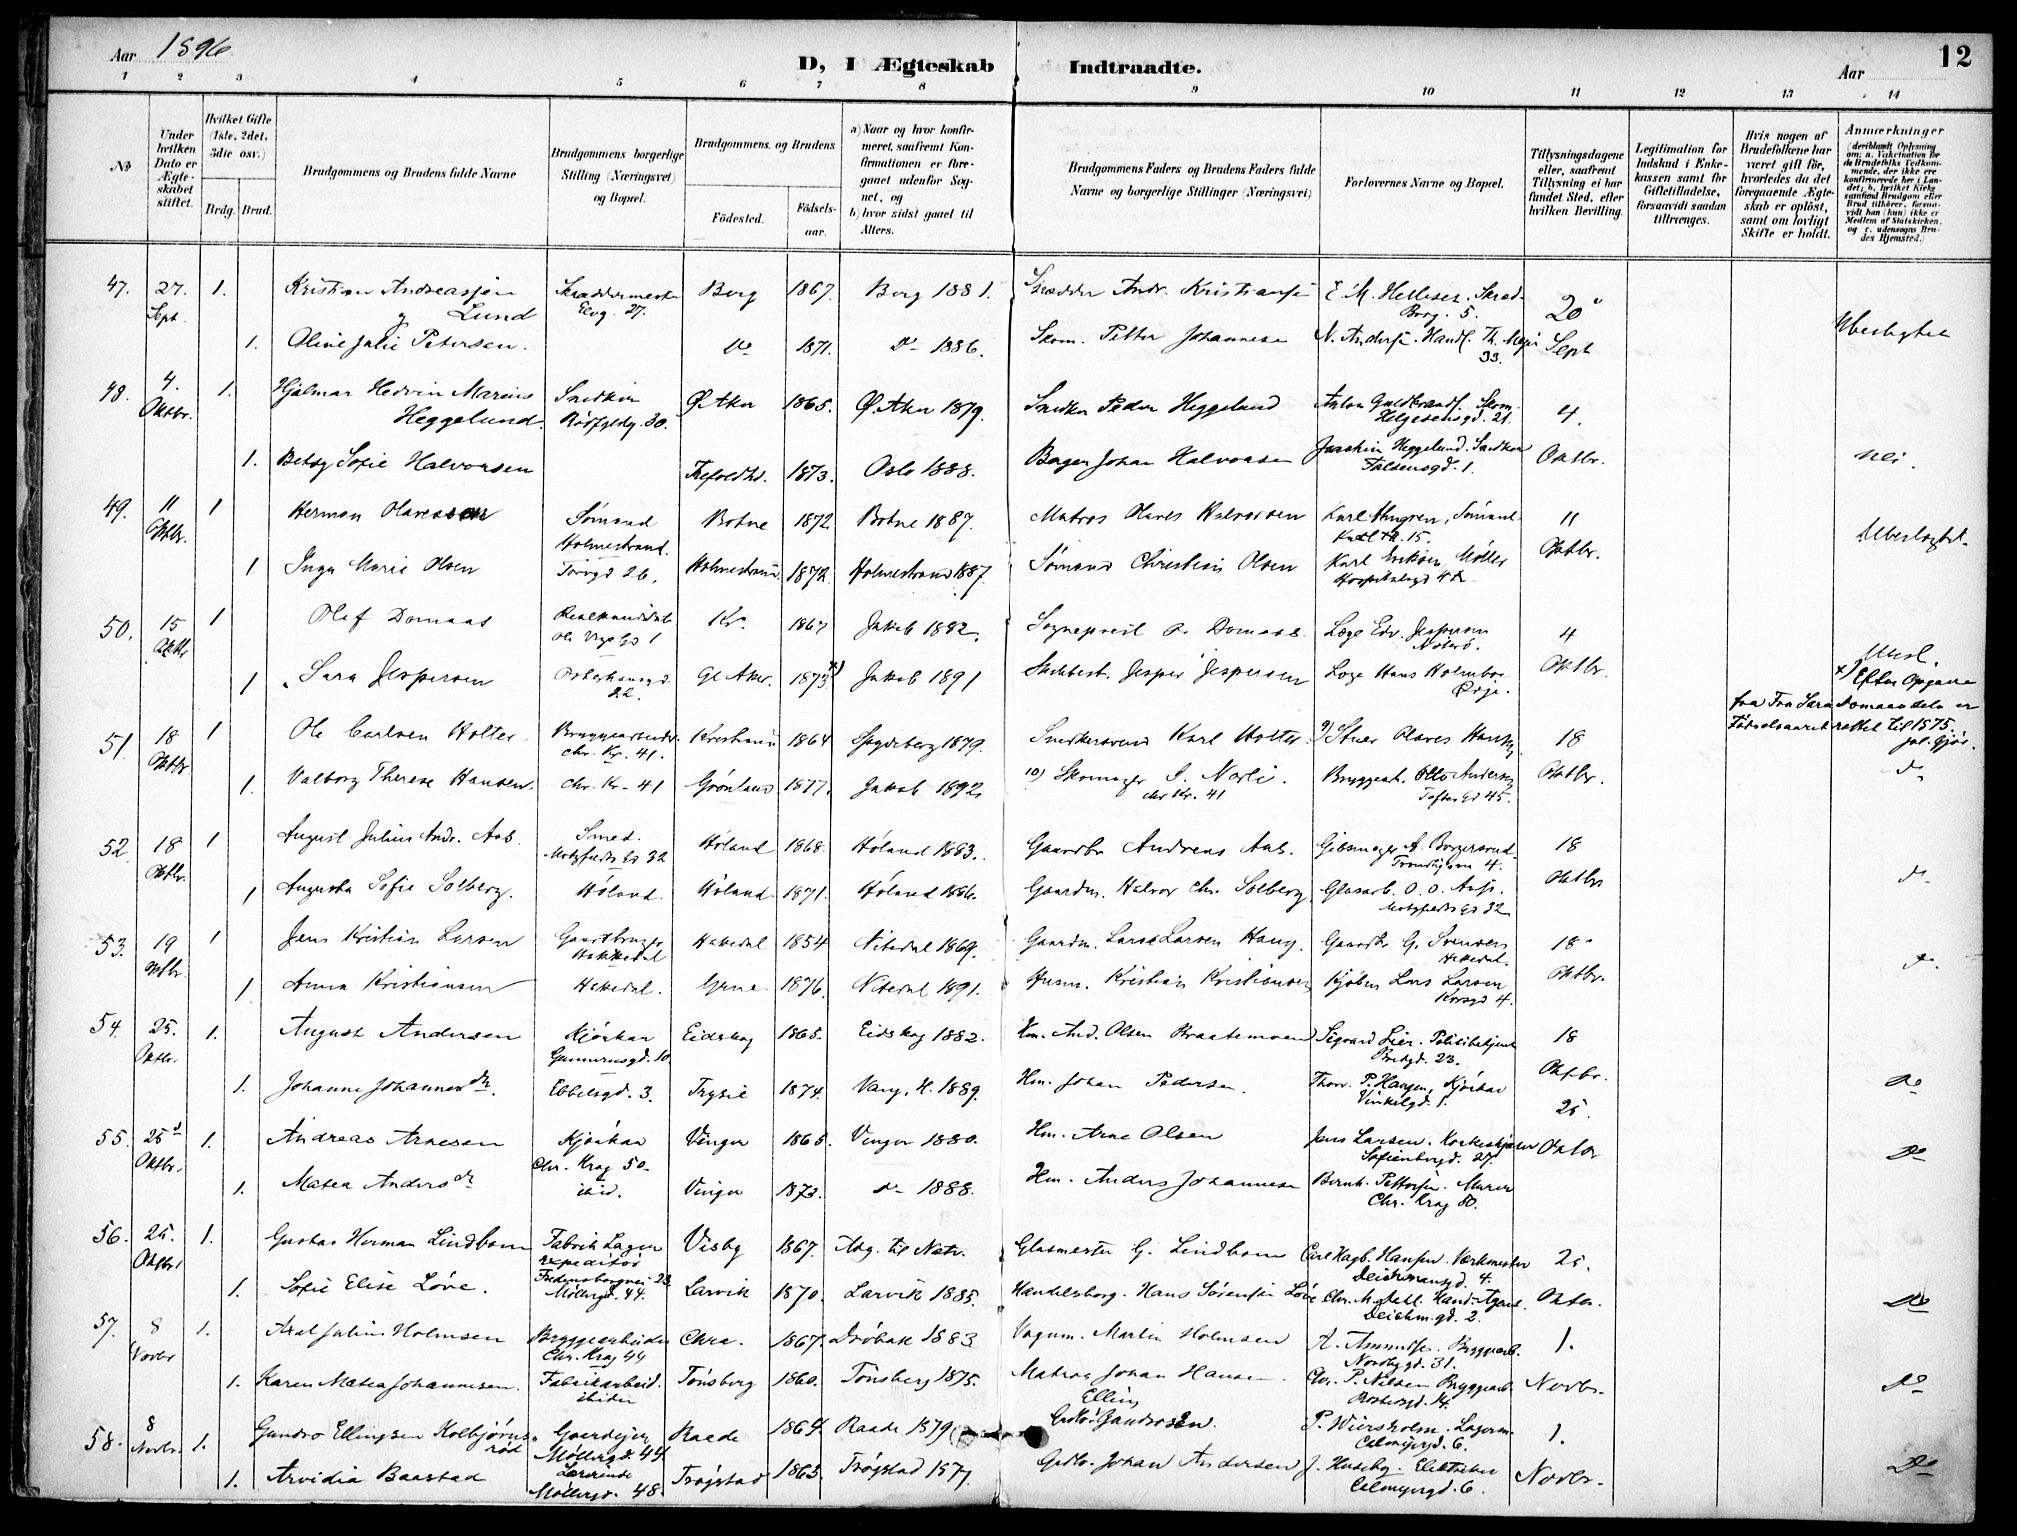 Aar 1896
D, I Ægteskab Indtraadte.
Aar
12
1 2 3 4 5 6 7 8 9 10 11 12 13 14
№
Under hvilken Dato er Ægteskabet stiftet.
Hvilket Gifte (1ste, 2det, 3die osv.)
Brdg. Brud.
Brudgommens og Brudens fulde Navne
Brudgommens borgerlige Stilling (Næringsvei) og Bopæl.
Brudgommens og Brudens
Fødested.
Fødselsaar.
a) Naar og hvor konfirmeret, saafremt Konfirmationen er foregaaet udenfor Sognet, og
b) hvor sidst gaaet til Alters.
Brudgommens Faders og Brudens Faders fulde Navne og borgerlige Stillinger (Næringsvei)
Forlovernes Navne og Bopæl.
Tillysningsdagene eller, saafremt Tillysning ei har fundet Sted, efter hvilken Bevilling.
Legitimation for Indskud i Enkekassen samt for Giftetilladelse, forsaavidt saadan tiltrænges.
Hvis nogen af Brudefolkene har været gift før, hvorledes da det foregaaende Ægteskab er opløst, samt om lovligt Skifte er holdt.
Anmærkninger (deriblandt Oplysning om: a. Vakcination for de Brudefolks Vedkommende, der ikke ere konfirmerede her i Landet; b. hvilket Kirkesamfund Brudgom eller Brud tilhører, forsaavidt han (hun) ikke er Medlem af Statskirken, og c. udensogns Brudes Hjemsted.)
47. 27. Sept. 1. Kristian Andreassen Lund Skræddermester Elvg. 27. Borg 1867. Borg 1881. Skrædder Andr. Kristiansen E. M. Hellesen. Skræd. Borg. 5. 20
1. Oline Julie Petersen. do 1871. do 1886. Skom. Petter Johannesen N. Andersen. Handl. Th. Meyer 33. Sept Ubeslegtet
48. 4. Oktbr. 1. Hjalmar Hedvin Marius Heggelund. Snedker Ø. Aker 1865. Ø. Aker 1879. Snedker Peder Heggelund Anton Guldbrands. Skom. Helgesensgd. 21. 4.
1. Betsy Sofie Halvorsen Trefoldhd. 1873. Oslo 1888. Bager Johan Halvorsen Joachim Heggelund. Snedker Falsensgd. 1. Oktbr. Nei.
49. 11 Oktbr. 1 Herman Olavessen Sømand Holmestrand. Botne 1872. Botne 1887. Matros Olaves Halvorsen Karl , Sømand 15. 11
1 Inga Marie Olsen Torvgd 26. Holmestrand 1872. Holmestrand 1887. Sømand Christian Olsen Karl Eriksen, Møller Hospitalsgd 4 Oktbr. Ubeslegtet.
50. 15 Oktbr 1 Olaf Domaas Ole Vigs Gd 1 Kra 1867 Jakob 1882. Sogneprest Domaas Læge Edv. Jespersen Nøterø. 4
1 Sara Jespersen Osterhausgd. 22. Gl Aker. 1873 x) Jakob 1891 Skibbest. Jesper Jespersen Læge Hans Holmboe Oktbr. Ubesl.
x) Efter Opgave fra Fru Sara Domaas er Fødselsaaret rettet til 1875.
51 18 Oktbr. 1 Ole Carlsen Holter. Bryggearbeider Chr. Kr. 41. Kristiania 1864 Spydeberg 1879. Snekkersvend Karl Holter 9) Stuer Olaves Hansen 18
1. Valborg Therese Hansen. Chr. Kr. 41 Grønland 1877. Jakob 1892. 10) Skomager S. Norli. Chr Kr. 41 Bryggearb. Otto Andersen Toftes Gd 45. Oktbr. do
52 18 Oktbr. 1 August Julius Andr. Aas. Smed. Motzfeldts Gd 32 Høland 1868. Høland 1883. Gaardbr Andreas Aas. Gibsmager A. Borgersrud. Trondhjemv 4. 18
1 Augusta Sofie Solberg. Høland. Høland. 1871. Høland 1886. Gaardm. Halvor Chr. Solberg Glasarb. O. O. Aas. Motzfeldts Gd 32 Oktbr do
53. 19 Oktbr. 1 Jens Kristian Larsen Gaardbruger Hakkedal Hakedal 1854 Nitedal 1869. Gaardm. Lars Larsen Haug. Gaardbr G. Svensen Hakedal. 18
1 Anna Kristiansen Hakedal. Grue. 1876. Nitedal 1891. Husm. Kristian Kristiansen Kjøbm Lars Larsen Korsgd 4. Oktbr. do
54. 25. Oktbr. 1. August Andersen Kjørkar Gunnerusgd. 10 Eidskog 1865. Eidskog 1882. Hm. And. Olsen Braatemoen Sigvard Lier. Politibetjent Bredgd. 23. 18
1. Johanne Johannesdtr. Ebbelsgd. 3. Trysil 1874. Vang, H. 1889. Hm. Johan Pedersen. Thorv. P. Hansen, Kjørkar Vinkelgd. 1. Oktbr. do
55. 25 Oktbr. 1. Andreas Arnesen Kjørkar Chr. Krog 50. Vinger 1865. Vinger 1880. Hm. Arne Olsen Jens Larsen. Sofienbergd. 27. 25. Oktbr do
1. Matea Andersdtr ibid. Vinger 1873. do 1888. Hm. Anders Johannesen Bernh. Pettersen. Murer Chr. Krog 50.
56. 25. Oktbr. 1. Gustav Herman Lindbom Fabrik Lager expeditør Fredensborgvei 23 Visby 1867. Adg. til Natv. Glasmester G. Lindbom Carl Hagb. Hansen. Værkmester Deichmansgd. 4. 25.
1. Sofie Elise Løve. Møllergd. 44. Larvik 1870. Larvik 1885. Handelsborg. Hans Sørensen Løve Chr. Hand. Agent. Deichm.gd. 2. Oktbr. do
57. 8 Novbr 1. Axel Julius Holmsen Bryggearbeider Chr. Krog 44 Chra. 1867. Drøbak 1883 Vognm. Martin Holmsen A. Amundsen. Bryggearb. Nordbygd. 31. 1.
1. Karen Matea Johannesen. Fabrikarbeid. ibidem Tønsberg 1860. Tønsberg 1875. Matros Johan Hansen. Chr. P. Nilsen Bryggearb. 14. Novbr. do
58. 8 Novbr. 1. Gundro Ellingsen Kolbjørnsrød Gaardejer Møllergd. 44. Raade 1864. Raade 1879 Grdbr. Elling Gundrosen. P. Wiersholm. Lagerm. Calmeyergd. 6. 1.
1. Arvidia Baastad Lærerinde Møllergd. 48. Trøgstad 1863. Trøgstad 1877. Grdbr. Johan Andersen J. Huseby. Elektriker Calmeyergd. 6. Novbr. do